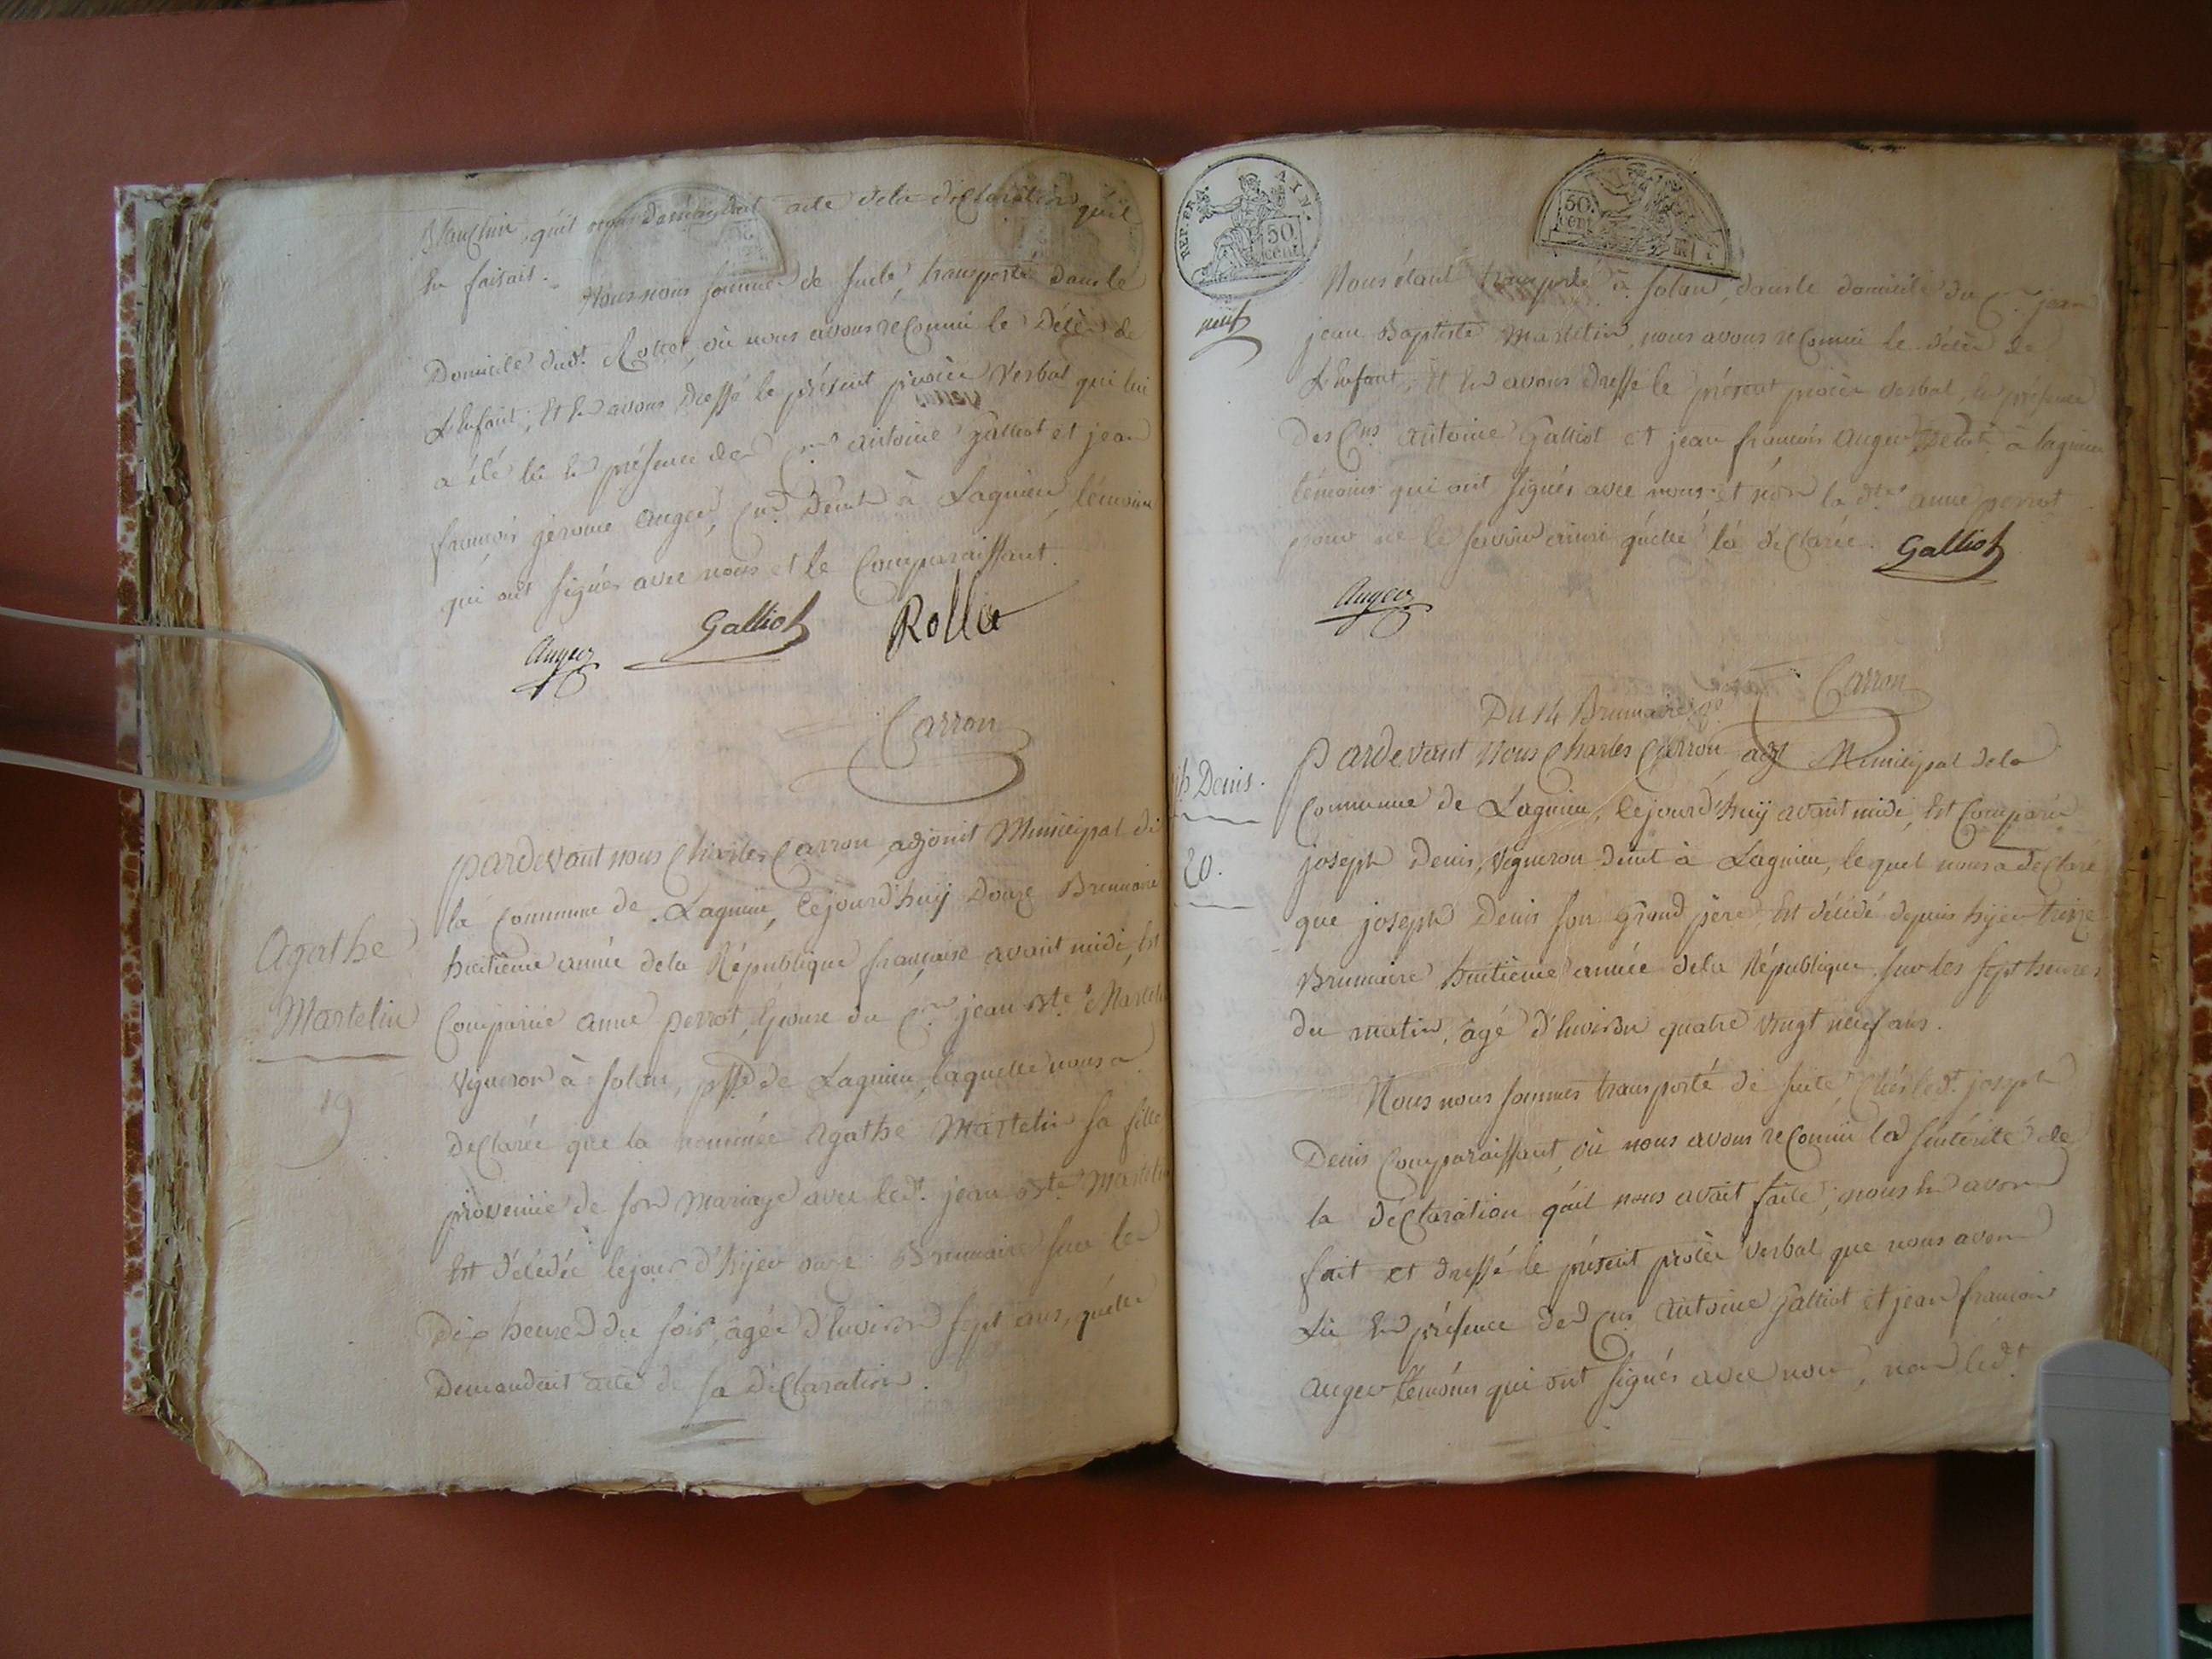 Blanchin, qu'il nous demandait acte dela déclaration qu'il
En faisait.
Nous nous sommes de suite, transporté dans le
Domicile dudt. Rollet, où nous avons reconnu le décès de
L'Enfant; Et En avons dressé le présent procès Verbal qui lui
a été lu En présence des Cns. antoine Galliot et jean
françois jerome auger, Cns. demt. à Lagnieu, témoins
qui ont signés avec nous et le Comparaissant.
Auger Galliot Rollet
Carron
Agathe
Martelin
19
pardevant nous Charles Carron adjoint Municipal de
la Commune de Lagnieu, Cejourd'huÿ Douze Brumaire
huitième année dela République française avant midi, Est
Comparue anne perrot, Epouse du Cn. jean Bte. Martelin
Vigneron à Solan, psse. de Lagnieu, laquelle nous a
déclarée que la nommée Agathe Martelin sa fille
provenüe de son Mariage avec ledt. jean Bte. Martelin
Est décédée lejour d'hÿer onze Brumaire sur les
Dix heures du soir, âgée d'Environ sept ans, quelle
Demandait acte de sa déclaration.
REP. FRA. AIN.
50 cent
50. cent
neuf
Nous étant transporté à Solan, dans le domicile du Cn. jean
jean Baptiste Martelin, nous avons reconnu le décès de
L'Enfant, Et En avons dressé le présent procès verbal, En présence
Des Cns. antoine Galliot et jean francois auger demt. à lagnieu
témoins qui ont signés avec nous et non la dte. anne perrot
pour ne le savoir ainsi quelle l'a déclarée. Galliot
Auger
Carron
Du 14 Brumaire
ph Denis.
20.
Pardevant Nous Charles Carron, adjt Municipal dela
Commune de Lagnieu, Cejourd'huÿ avant midi, Est Comparu
joseph Denis, Vigneron demt à Lagnieu, lequel nous a déclaré
que joseph Denis son Grand père Est décédé depuis hÿer treize
Brumaire huitième année dela République sur les sept heures
du matin, âgé d'Environ quatre vingt neuf ans.
Nous nous sommes transporté de suite, Chés ledt. joseph
Denis Comparaissant, où nous avons reconnu la sincérité de
la déclaration qu'il nous avait faite; nous En avons
fait et dressé le présent procès Verbal que nous avons
Lu En présence des Cns. antoine Galliot et jean françois
auger témoins qui ont signés avec nous, non ledt.